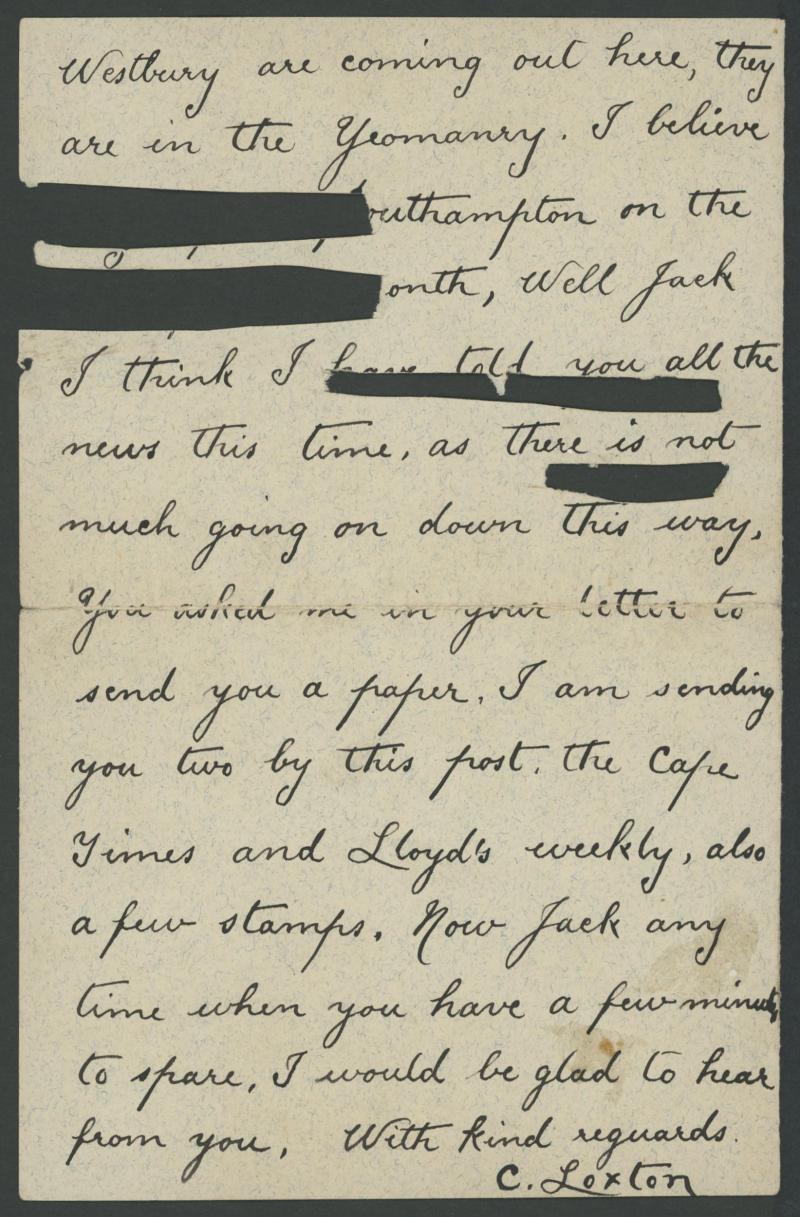 Westbury are coming out here, they
are in the Yeomanry. I believe
outhampton on the
onth, Well Jack
I think I have told you all the
news this time, as there is not
much going on down this way.
You asked me in your letter to
send you a paper. I am sending
you two by this post. the Cape
Times and Lloyd's weekly, also
a few stamps. Now Jack any
time when you have a few minuts,
to spare, I would be glad to hear
from you. With kind reguards.
C. Loxton